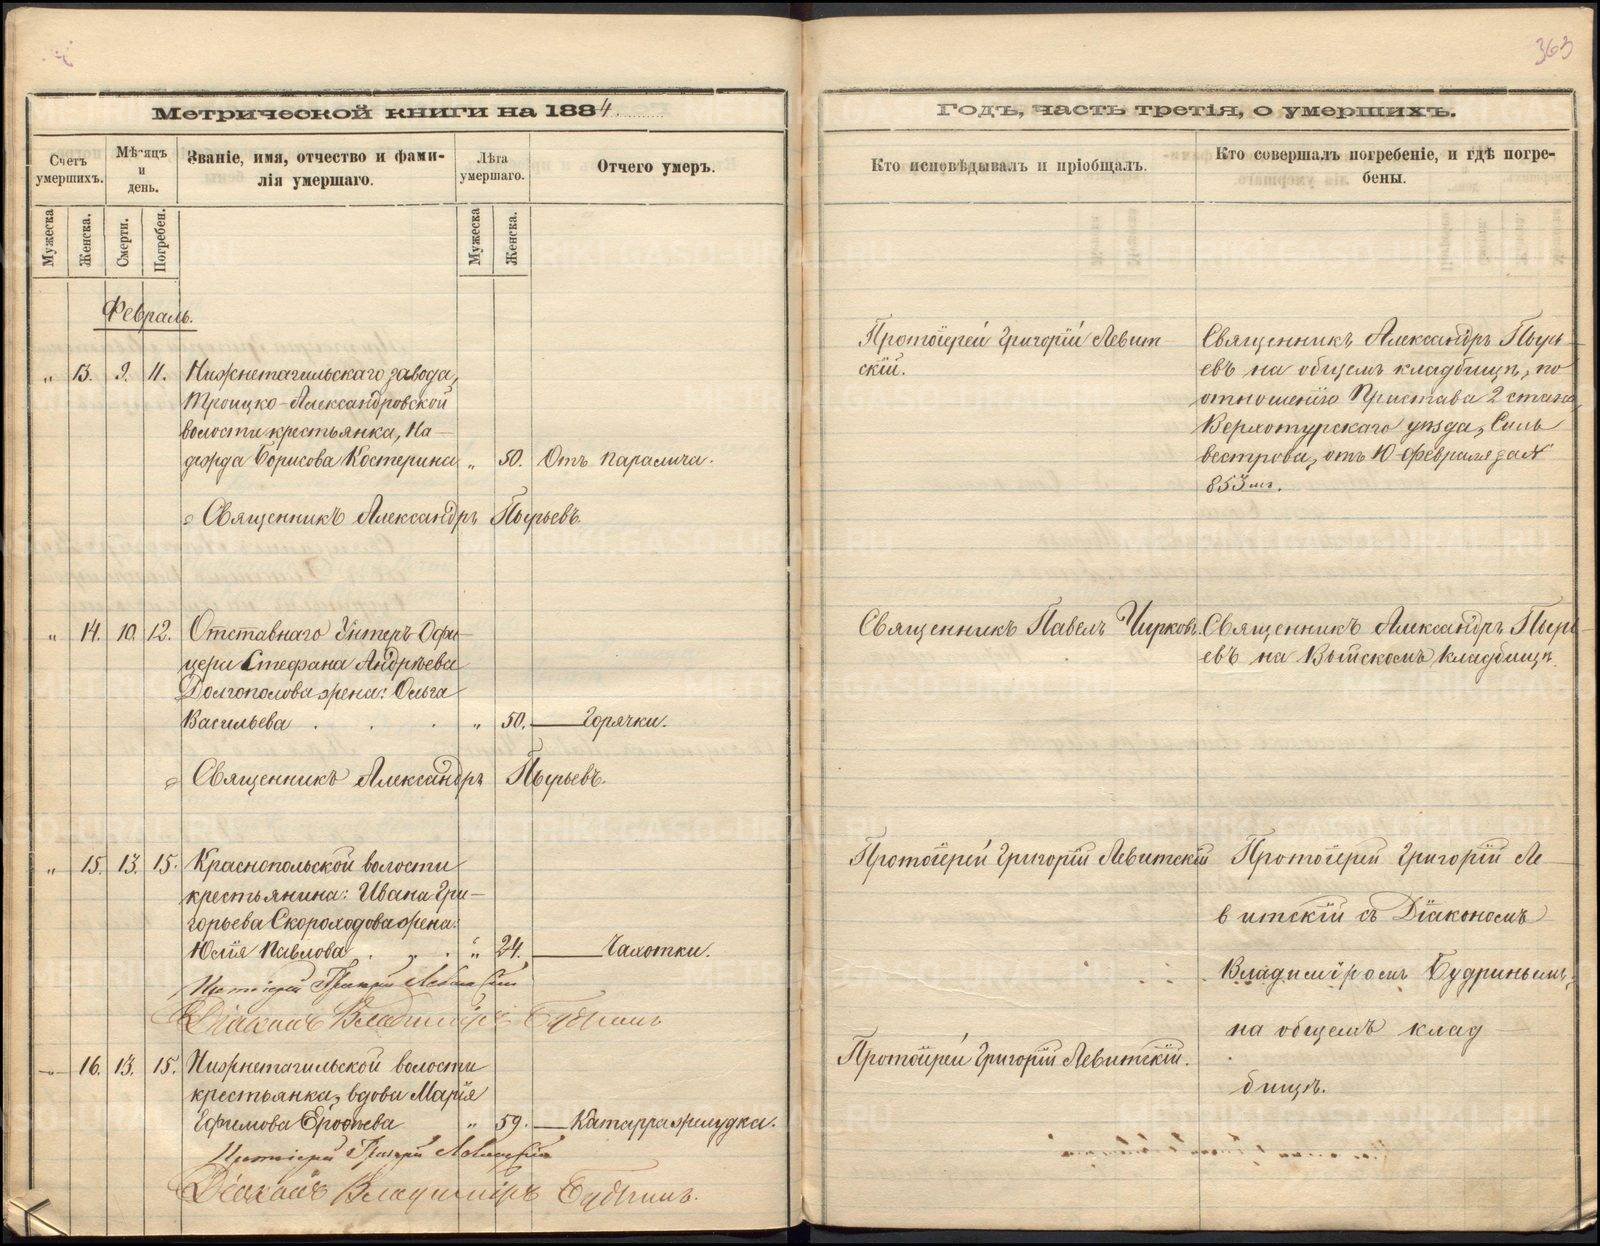 363
Метрической книги на 1884.
Годъ, часть третія, о умершихъ.
Счетъ умершихъ.
Мѣсяцъ и день.
Званіе, имя, отчество и фами-
лія умершаго.
Лѣта умершаго.
Отчего умеръ.
Кто исповѣдывалъ и пріобщалъ.
Кто совершалъ погребеніе, и гдѣ погре-
бены.
Мужеска
Женска.
Смерти.
Погребен.
Мужеска
Женска.
Февраль.
„ 13. 9. 11. Нижнетагильскаго завода,
Троицко-Александровской
волости крестьянка, На-
дежда Борисова Костерина „ 50. Отъ паралича.
Священникъ Александръ Пырьевъ.
Протоіерей Григорій Левит-
скій.
Священникъ Александръ Пырь-
евъ на общемъ кладбищѣ, по
отношенію Пристава 2 стана,
Верхотурскаго уѣзда, Силь-
вестрова, отъ 10 февраля за №
853мъ.
„ 14. 10. 12. Отставнаго Унтеръ Офи-
цера Стефана Андреева
Долгополова жена: Ольга
Васильева „ 50. — Горячки.
Священникъ Александръ Пырьевъ.
Священникъ Павелъ Чирковъ.
Священникъ Александръ Пырь-
евъ на Выйскомъ кладбищѣ.
„ 15. 13. 15. Краснопольской волости
крестьянина: Ивана Гри-
горьева Скороходова жена:
Юлія Павлова „ 24. — Чахотки.
Протоіерей Григорій Левитскій
Діаконъ Владиміръ Будринъ
Протоіерей Григорій Левитскій
Протоіерей Григорій Ле-
витскій съ Діакономъ
Владиміромъ Будринымъ,
на общемъ клад-
бищѣ.
„ 16. 13. 15. Нижнетагильской волости
крестьянка, вдова Марія
Ефимова Ерофѣева „ 59. — Катарра желудка.
Протоіерей Григорій Левитскій
Діаконъ Владиміръ Будринъ.
Протоіерей Григорій Левитскій.